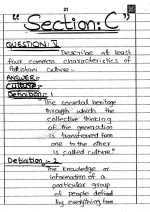 21
"Section: C"
QUESTION: V
Describe at least
four common characteristics of
Pakistani culture.
ANSWER:-
CULTURE:-
Definition: 1
"The societal heritage
through which the
collective thinking
of the generation
is transferred from
one to the other
is called culture."
Definition - 2
The knowledge or
information of a
particular group
of people defined
by everything from